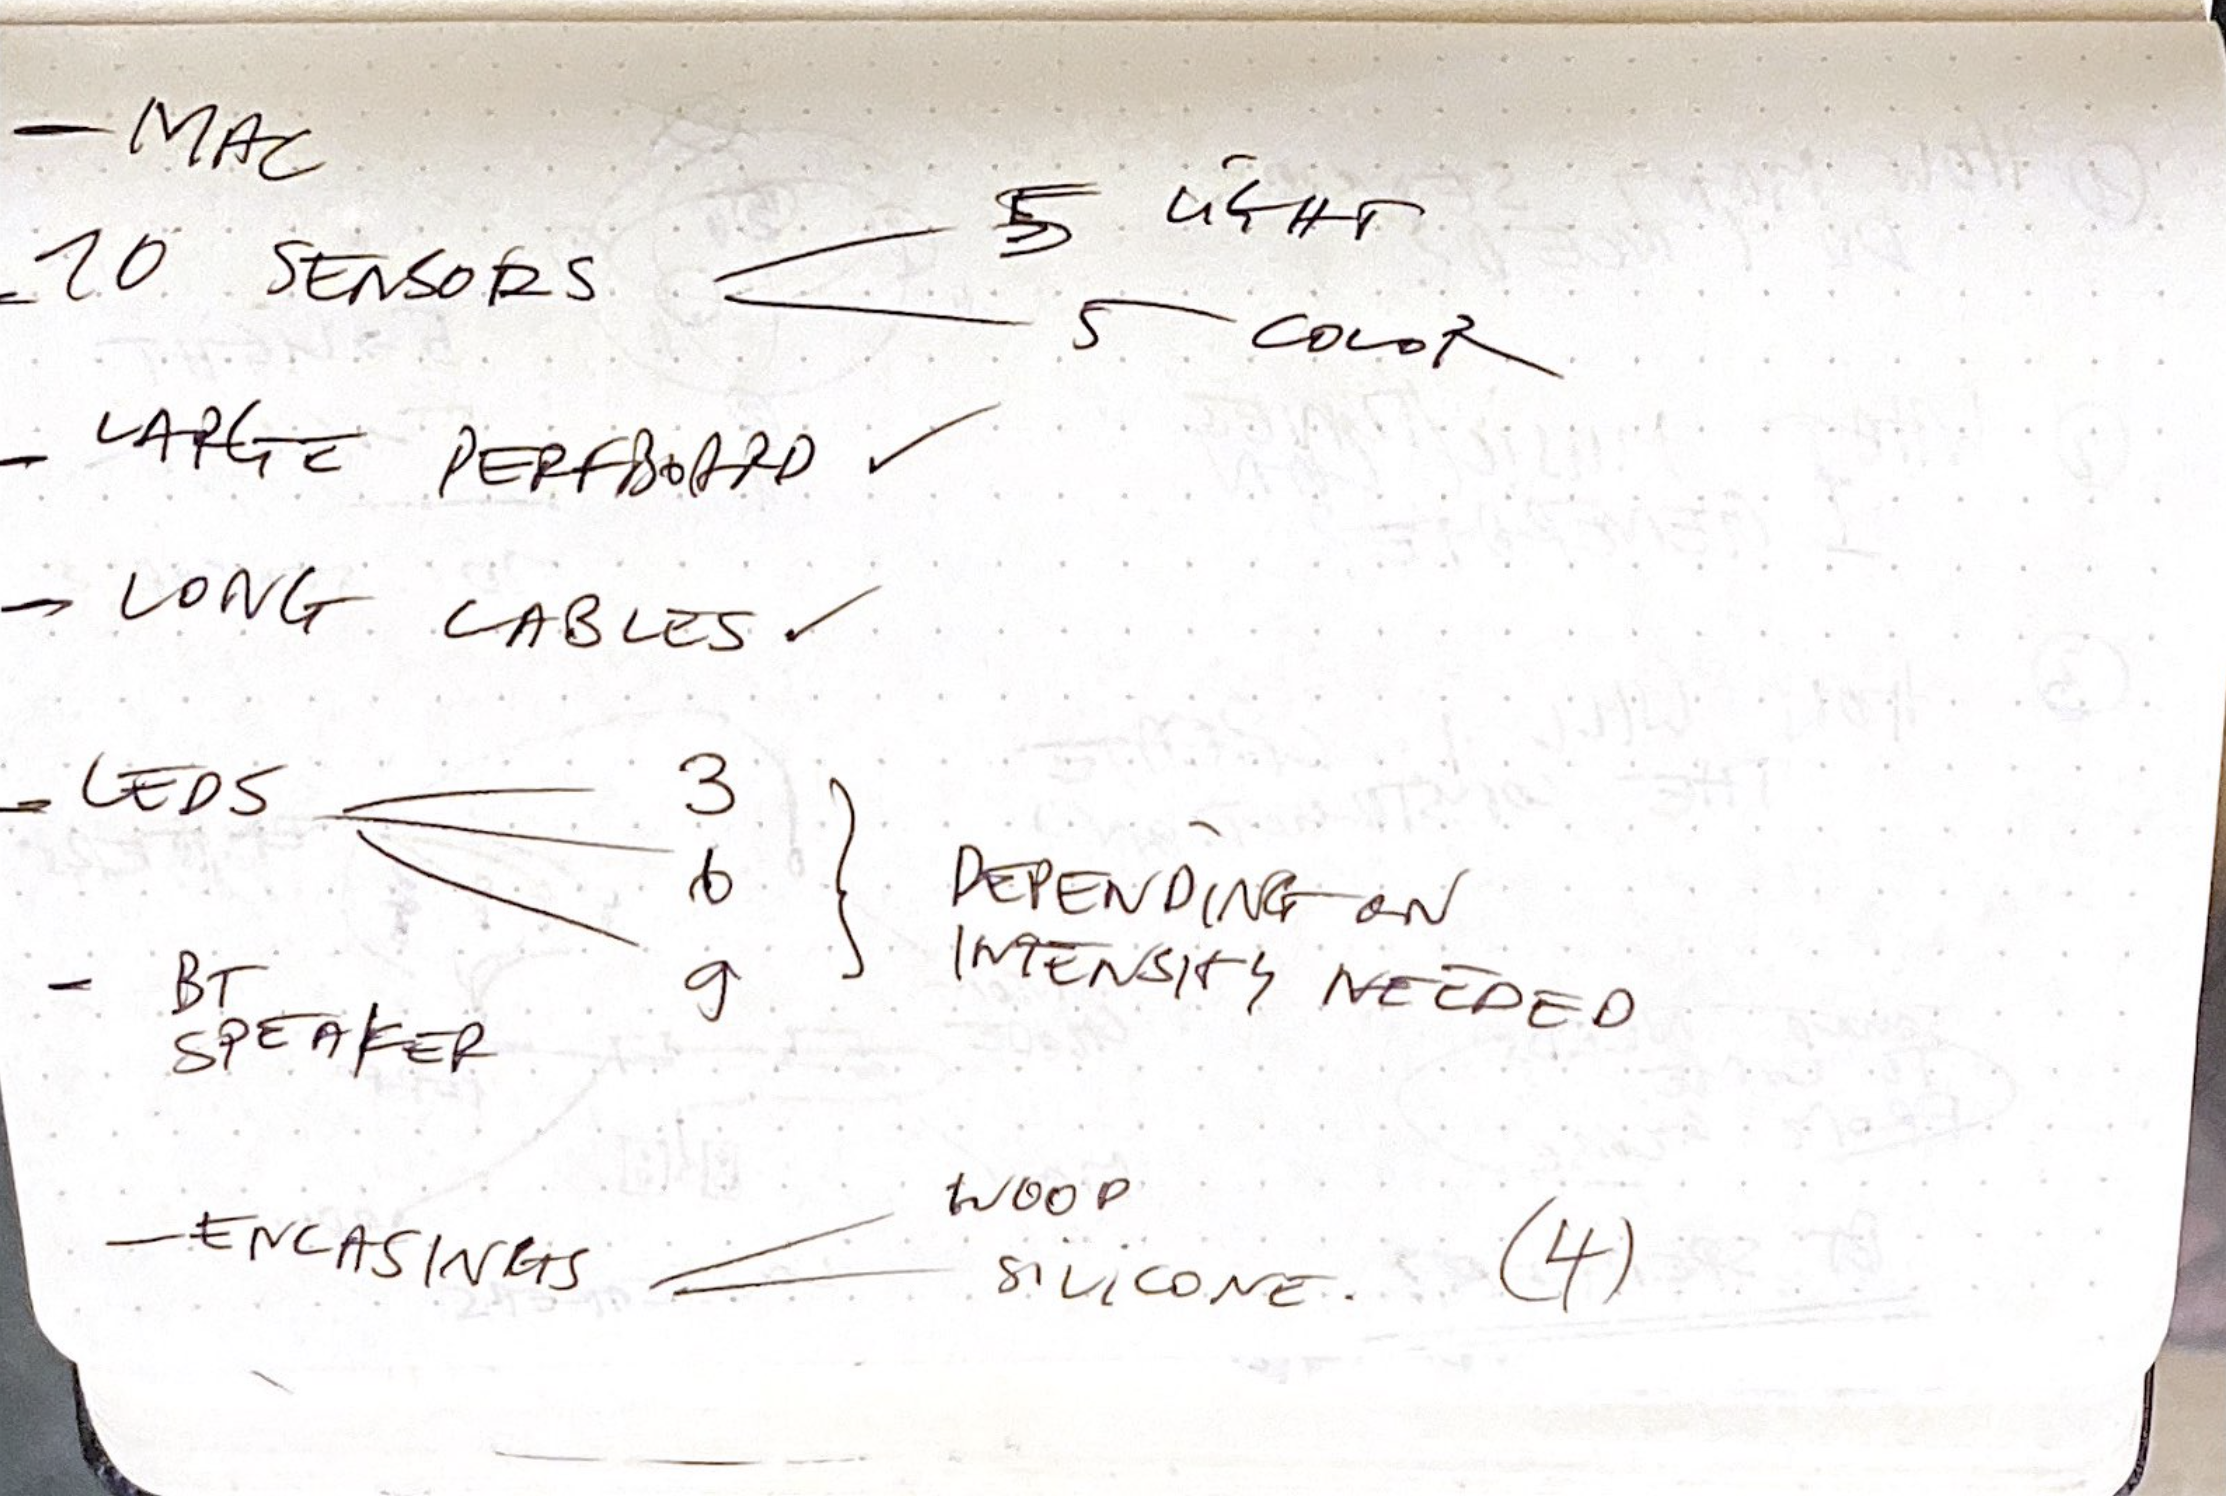 - MAC
- 10 SENSORS
5 LIGHT
5 COLOR
- LARGE PERFBOARD ✓
- LONG CABLES ✓
- LEDS
3
6
9
} DEPENDING ON
INTENSITY NEEDED
- BT
SPEAKER
- ENCASINGS
WOOD
SILICONE.
(4)